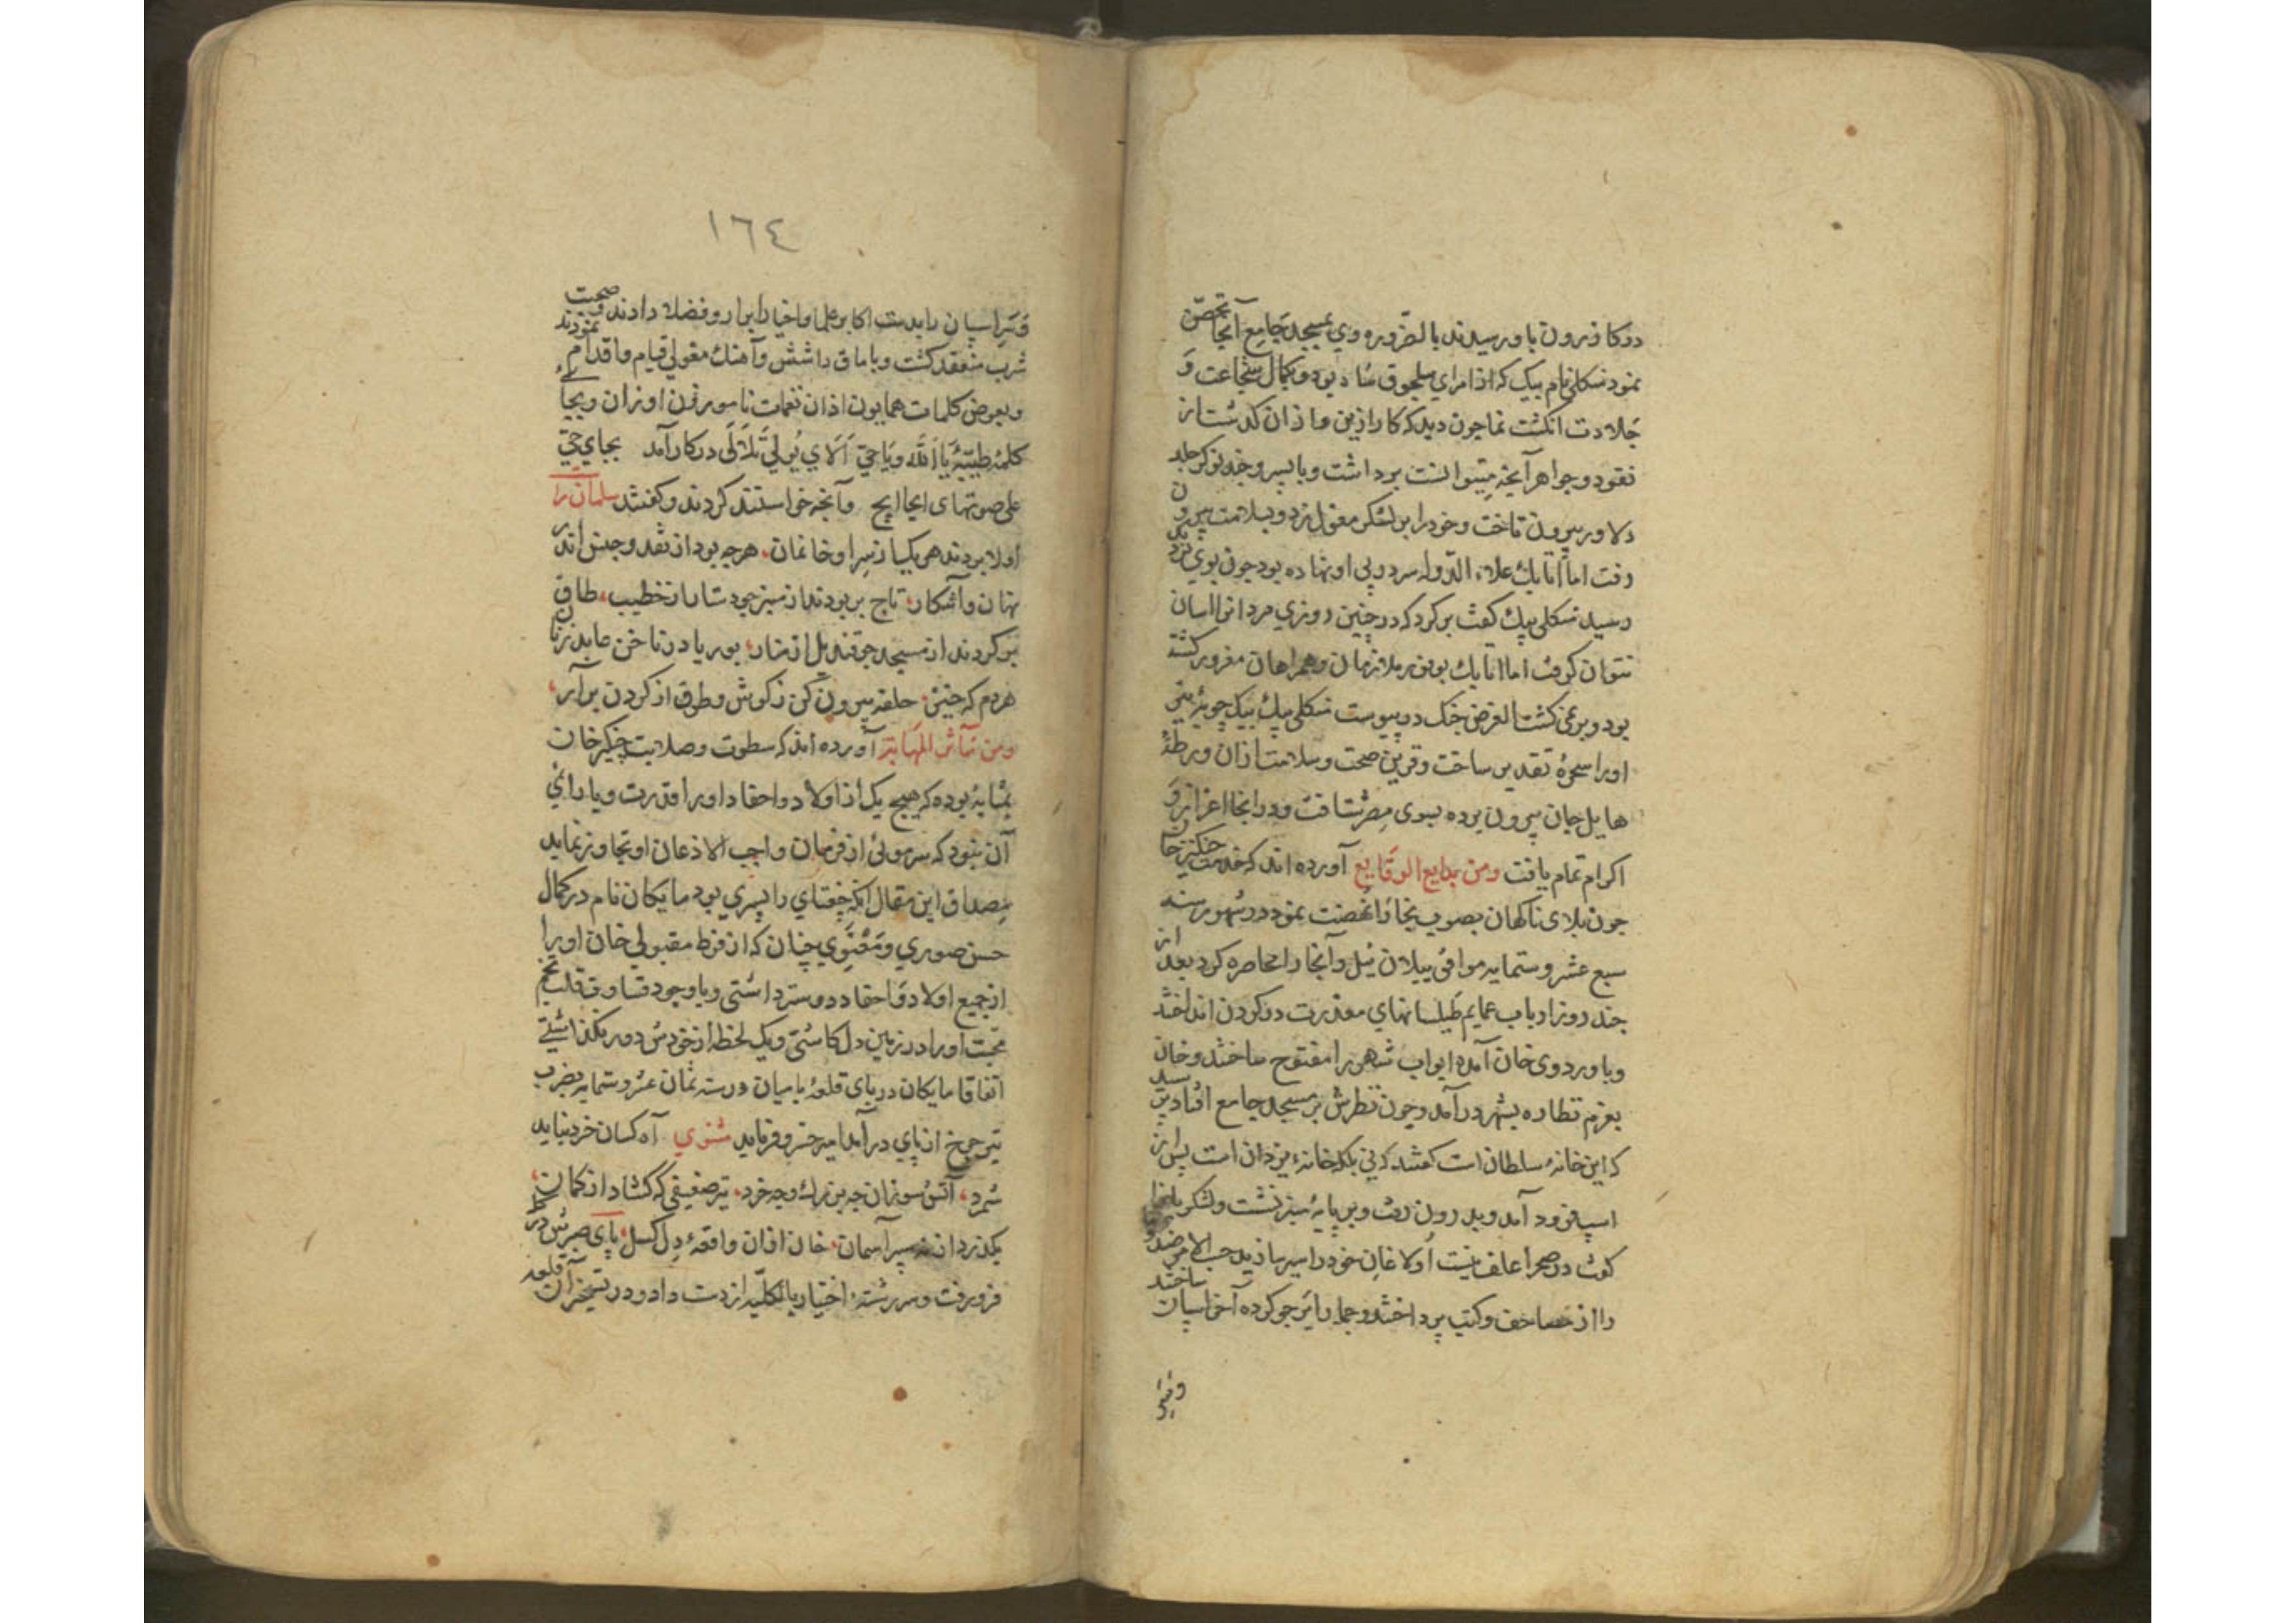 دو کافرون باو رسیدند بالضروره وی بمسجد جامع آنجا تحصن
نمود نسکلی نام بیک که از امرای سلجوق شاه بود و بکمال شجاعت و
جلادت انکشت نما چون دید که کار ازین و از آن کذشت از
نقود و جواهر آنچه میتوانست برداشت و با پسر و چند نوکر جلد
دلاور بیرون تاخت و خود را بر لشکر مغول زد و بسلامت بیرون
رفت اما اتابک علاء الدوله سر در پی او نهاده بود چون بوی نزدیک
رسید نسکلی بیک کفت برکرد که در چنین روزی مردانرا اسان
نتوان کرفت اما اتابک بوفور ملازمان و همراهان مغرور کشته
بود و برنمی کشت الغرض جنک در پیوست نسکلی بیک بیک چوبه تیر
او را سخره تقدیر ساخت و قرین صحت و سلامت از آن ورطه
هایل جان بیرون برده بسوی مصر شتافت و در انجا اعزاز و
اکرام تمام یافت ومن بدایع الوقایع آورده اند که خدمت چنکیز خان
چون بلای ناکهان بصوب بخارا نهضت نمود در شهور سنه
سبع عشر و ستمایه موافق ییلان ئیل و آنجا را محاصره کرد بعد از
چند روز ارباب عمایم طیلسانهای معذرت در کردن انداخته
و باوردوی خان آمده ابواب شهر را مفتوح ساختند و خان
بعزم نظاره بشهر درآمد و چون نظرش بر مسجد جامع افتاد پرسید
که این خانه سلطان است کفتند که نی بلکه خانه یزدان است پس از
اسپ فرود آمد و بدرون رفت و بر پایه منبر نشست و لشکر یانرا
کفت در صحرا علف نیست اولاغان خود را سیر سازید حسب الامر
را از مصاحف و کتب پرداختند و جمله را پر جو کرده آخر اسپان ساختند
وقیز
١٦٤
و قیز اسپان را بدست اکابر علما و اخیار ابرار و فضلا دادند و صحبت
شرب منعقد کشت و باماق داشش و آهنک مغولی قیام و اقدام نمودند
و بعوض کلمات همایون اذان نغمات ناموزون اوزان و بجای
کلمه طیبه یا الله و یا حی الای یلی تللا لی در کار آمد بجای حی
علی صوتهای ایجا ایج و آنچه خواستند کردند و کفتند سلمان را
اولا بردند هر یکسان سرا و خانمان، هرچه بود از نقد و جنس اندر
نهان و آشکار، تاج بربودند از منبر چو دستار از خطیب، طاق
بر کردند از مسجد چو قندیل از منار، بوریا در ناخن عابد زنان
هردم که چنین، حلقه بیرون کن ز کوش و طوق از کردن برآر،
ومن مآثر المهابة آورده اند که سطوت و صلابت چنکیز خان
بمثابه بوده که هیچ یک از اولاد و احفاد او را قدرت و یارای
آن نبود که سر موئی از فرمان واجب الاذعان او تجاوز نماید
مصداق این مقال آنکه چغتای را پسری بود مایکان نام در کمال
حسن صوری و معنوی چنان که از فرط مقبولی خان او را
از جمیع اولاد و احفاد دوستر داشتی و با وجود قساوت قلب تخم
محبت او را در زمین دل کاشتی و یک لحظه از خودش دور نکذاشتی
اتفاقا مایکان در پای قلعه بامیان در سنه ثمان عشر و ستمایه بضرب
تیر چرخ از پای درآمد امیر خسرو فرماید مثنوی آه کسان خرد نباید
شمرد، آتش سوزان چه بزرک و چه خرد، تیر ضعیفی که کشاد از کمان،
بکذرد از نه سپر آسمان، خان از آن واقعه دل کسل پای صبرش در کل
فرو رفت و سررشته اختیار بالکلیه از دست داد و در تسخیر آن قلعه